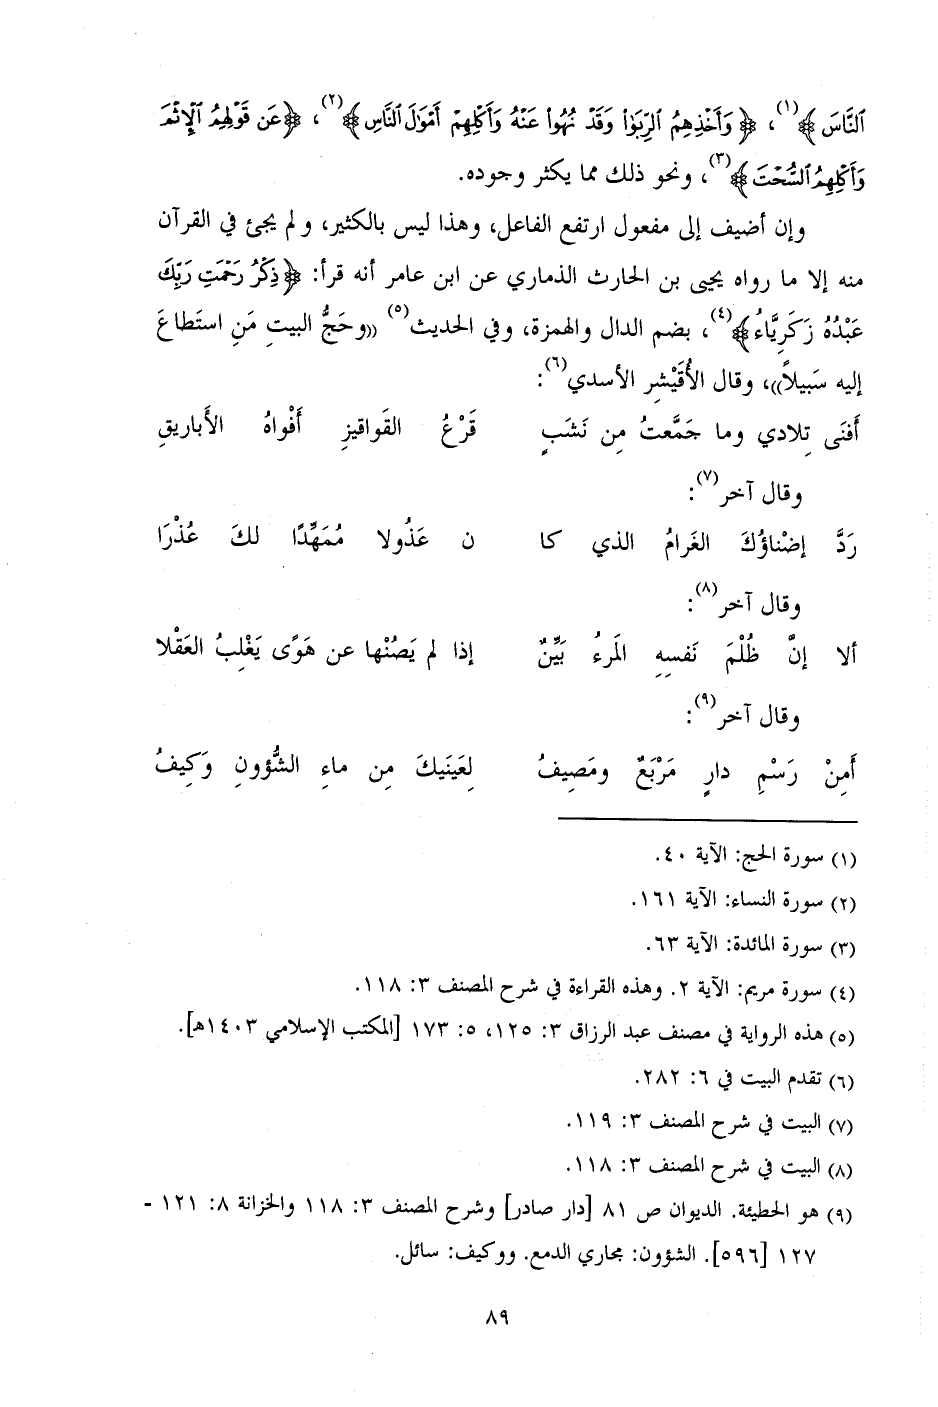 ٱلنَّاسَ ﴾(١)، ﴿ وَأَخْذِهِمُ ٱلرِّبَوٰا۟ وَقَدْ نُهُوا۟ عَنْهُ وَأَكْلِهِمْ أَمْوَٰلَ ٱلنَّاسِ ﴾(٢)، ﴿ عَن قَوْلِهِمُ ٱلْإِثْمَ
وَأَكْلِهِمُ ٱلسُّحْتَ ﴾(٣)، ونحو ذلك مما يكثر وجوده.
وإن أضيف إلى مفعول ارتفع الفاعل، وهذا ليس بالكثير، و لم يجئ في القرآن
منه إلا ما رواه يحيى بن الحارث الذماري عن ابن عامر أنه قرأ: ﴿ ذِكْرُ رَحْمَتِ رَبِّكَ
عَبْدُهُ زَكَرِيَّاءُ ﴾(٤)، بضم الدال والهمزة، وفي الحديث(٥) ((وحَجُّ البيتِ مَنِ استَطاعَ
إليه سَبيلاً))، وقال الأُقَيْشِر الأسدي(٦):
أَفنَى تِلادي وما جَمَّعتُ مِن نَشَبٍ قَرْعُ القَواقيزِ أَفْواهُ الأَباريقِ
وقال آخر(٧):
رَدَّ إضْناؤُكَ الغَرامُ الذي كا ن عَذُولا مُمَهِّدًا لكَ عُذْرَا
وقال آخر(٨):
ألا إنَّ ظُلْمَ نَفسِهِ المَرءُ بَيِّنٌ إذا لم يَصُنْها عن هَوًى يَغْلِبُ العَقْلا
وقال آخر(٩):
أَمِنْ رَسْمِ دارٍ مَرْبَعٌ ومَصِيفُ لِعَينَيكَ مِن ماءِ الشُّؤونِ وَكِيفُ
(١) سورة الحج: الآية ٤٠.
(٢) سورة النساء: الآية ١٦١.
(٣) سورة المائدة: الآية ٦٣.
(٤) سورة مريم: الآية ٢. وهذه القراءة في شرح المصنف ٣: ١١٨.
(٥) هذه الرواية في مصنف عبد الرزاق ٣: ١٢٥، ٥: ١٧٣ [المكتب الإسلامي ١٤٠٣هـ].
(٦) تقدم البيت في ٦: ٢٨٢.
(٧) البيت في شرح المصنف ٣: ١١٩.
(٨) البيت في شرح المصنف ٣: ١١٨.
(٩) هو الحطيئة. الديوان ص ٨١ [دار صادر] وشرح المصنف ٣: ١١٨ والخزانة ٨: ١٢١ -
١٢٧ [٥٩٦]. الشؤون: مجاري الدمع. ووكيف: سائل.
٨٩